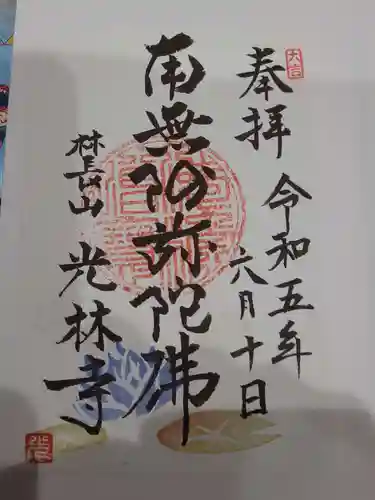 奉拝
大吉
令和五年
六月十日
南無阿弥陀佛
光林寺